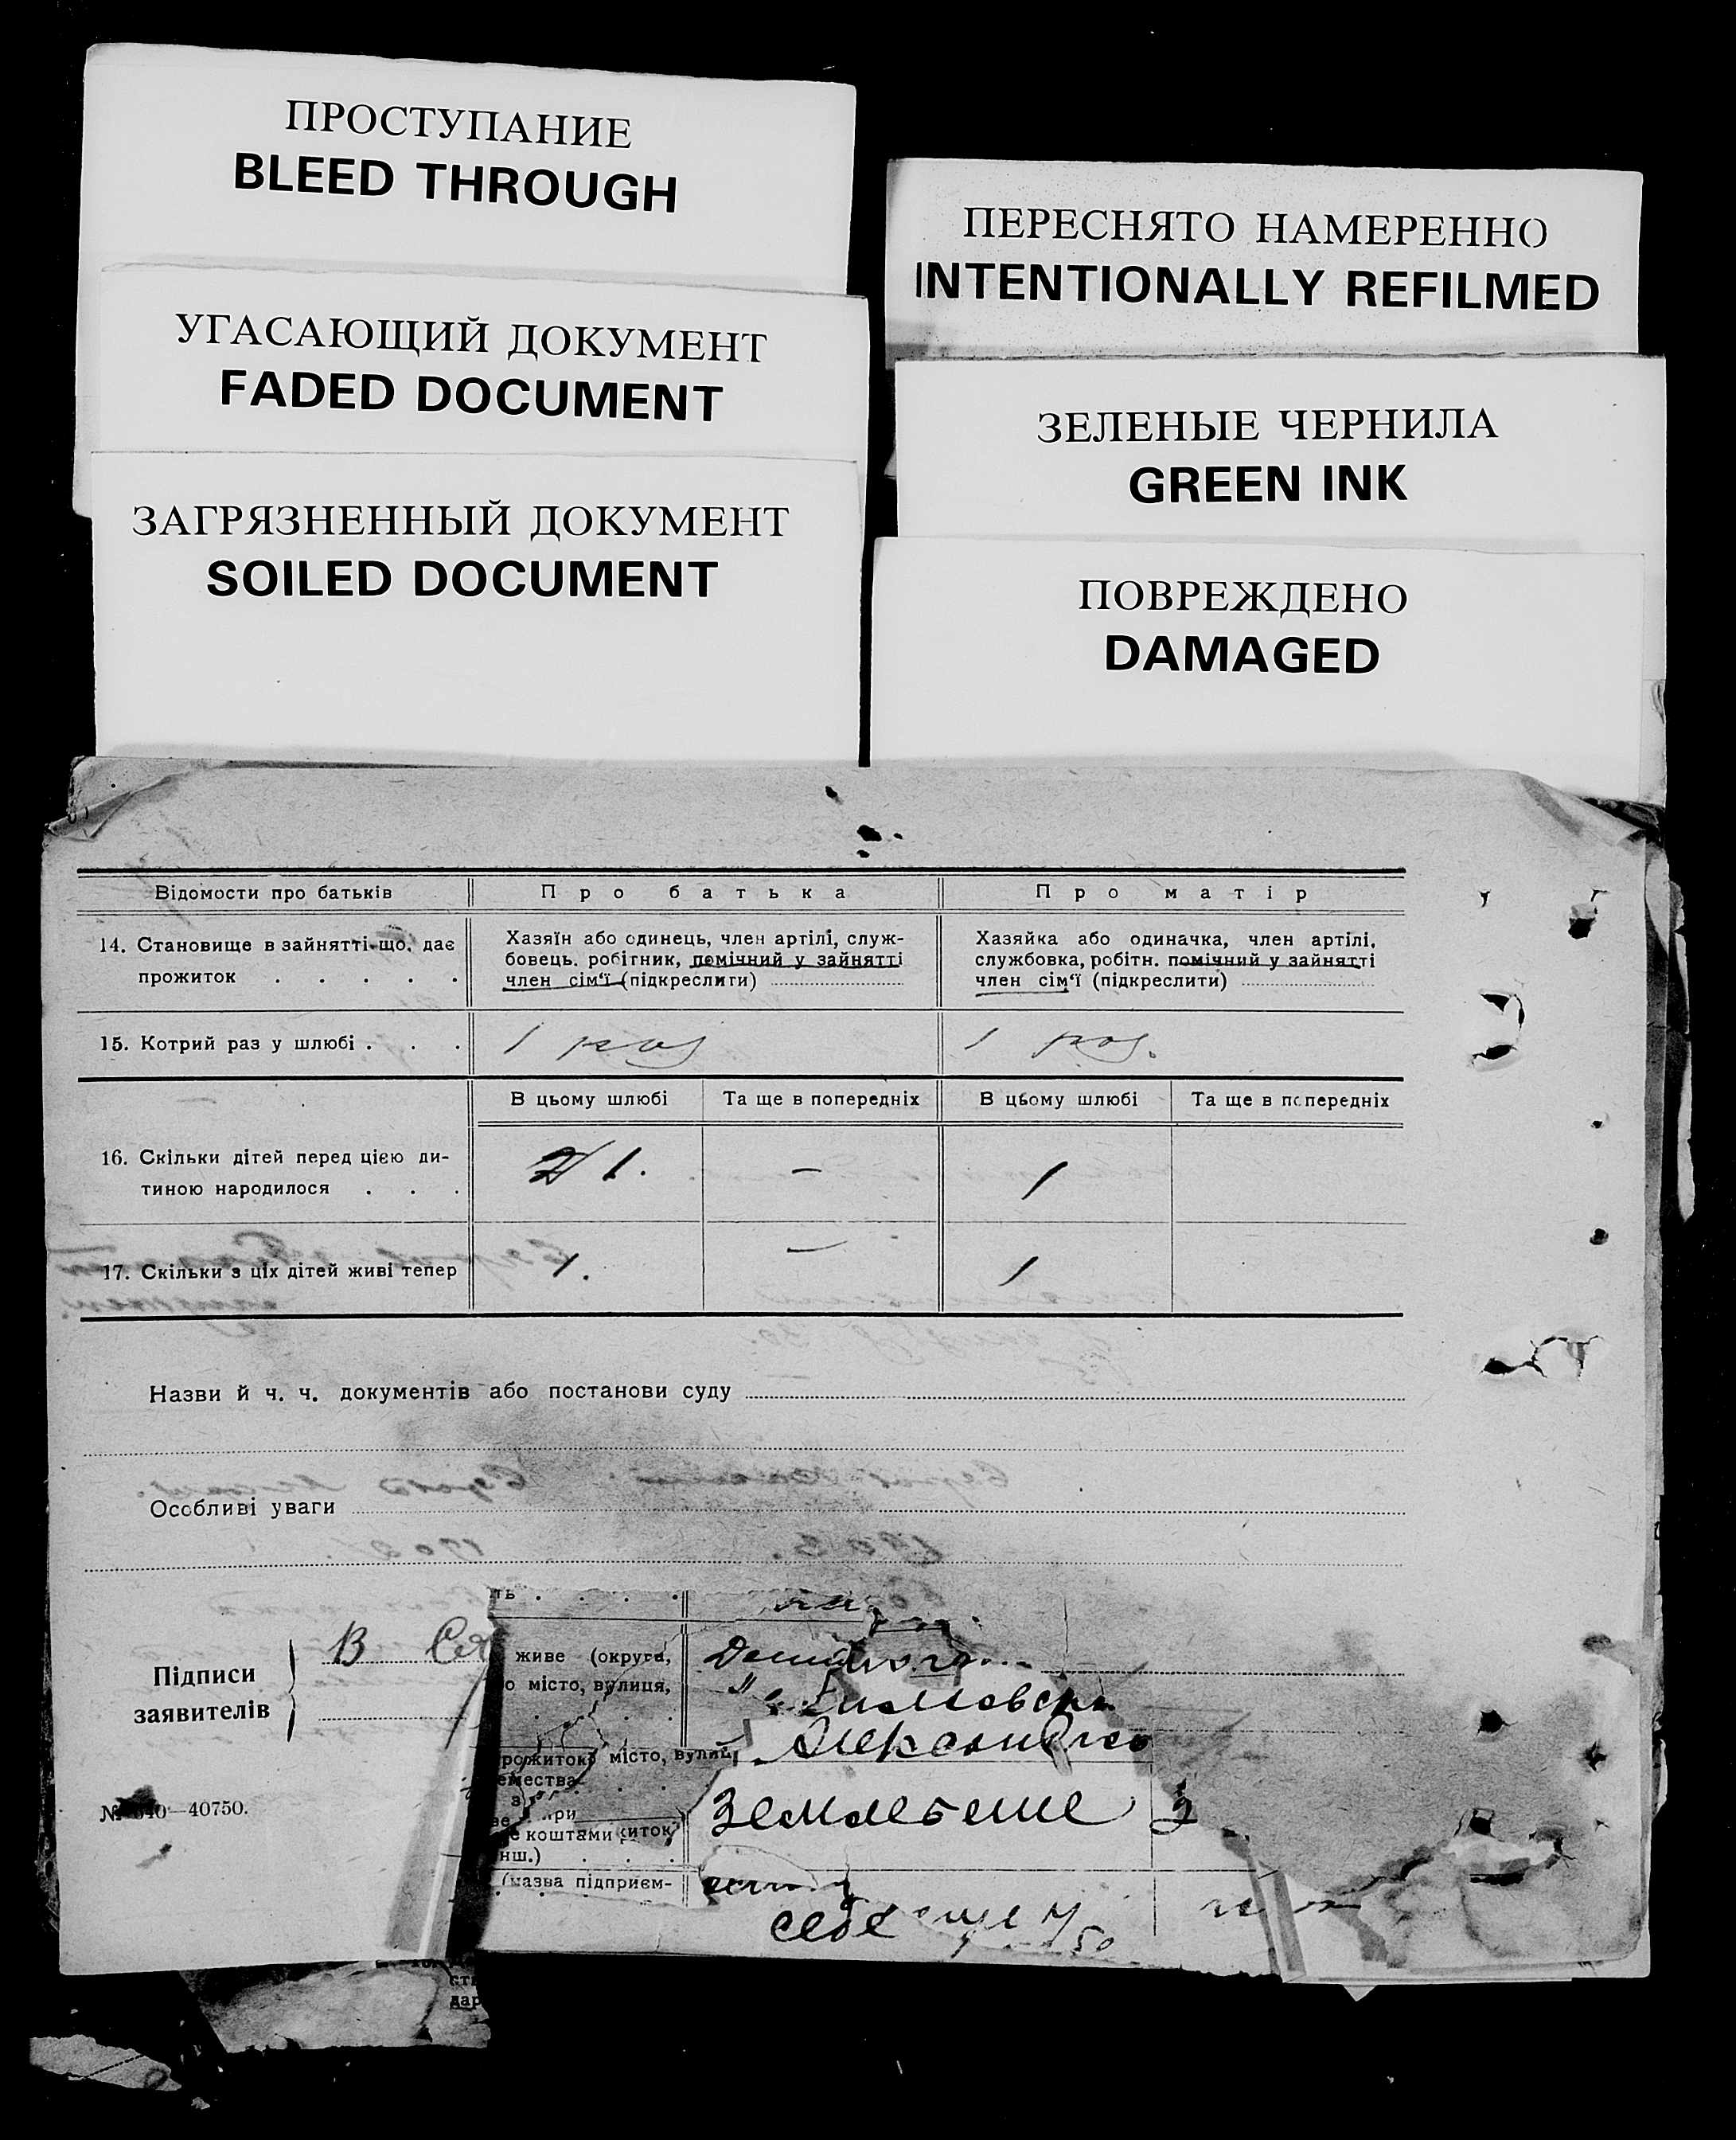 ПРОСТУПАНИЕ
BLEED THROUGH
УГАСАЮЩИЙ ДОКУМЕНТ
FADED DOCUMENT
ЗАГРЯЗНЕННЫЙ ДОКУМЕНТ
SOILED DOCUMENT
ПЕРЕСНЯТО НАМЕРЕННО
INTENTIONALLY REFILMED
ЗЕЛЕНЫЕ ЧЕРНИЛА
GREEN INK
ПОВРЕЖДЕНО
DAMAGED
Відомости про батьків
Про батька
Про матір
14. Становище в зайнятті що, дає
прожиток . . . . .
Хазяїн або одинець, член артілі, служ-
бовець. робітник, помічний у зайнятті
член сім'ї (підкреслити)
Хазяйка або одиначка, член артілі,
службовка, робітн. помічний у зайнятті
член сім'ї (підкреслити)
15. Котрий раз у шлюбі . . .
1 раз
1 раз.
В цьому шлюбі
Та ще в попередніх
В цьому шлюбі
Та ще в попередніх
16. Скільки дітей перед цією ди-
тиною народилося . . .
2/1.
–
1
17. Скільки з ціх дітей живі тепер
1.
–
1
Назви й ч. ч. документів або постанови суду
Особливі уваги
Підписи
заявителів
В
живе (округа,
місто, вулиця,
місто, вулиц
коштами
нш.)
(назва підприєм-
себе
40750.